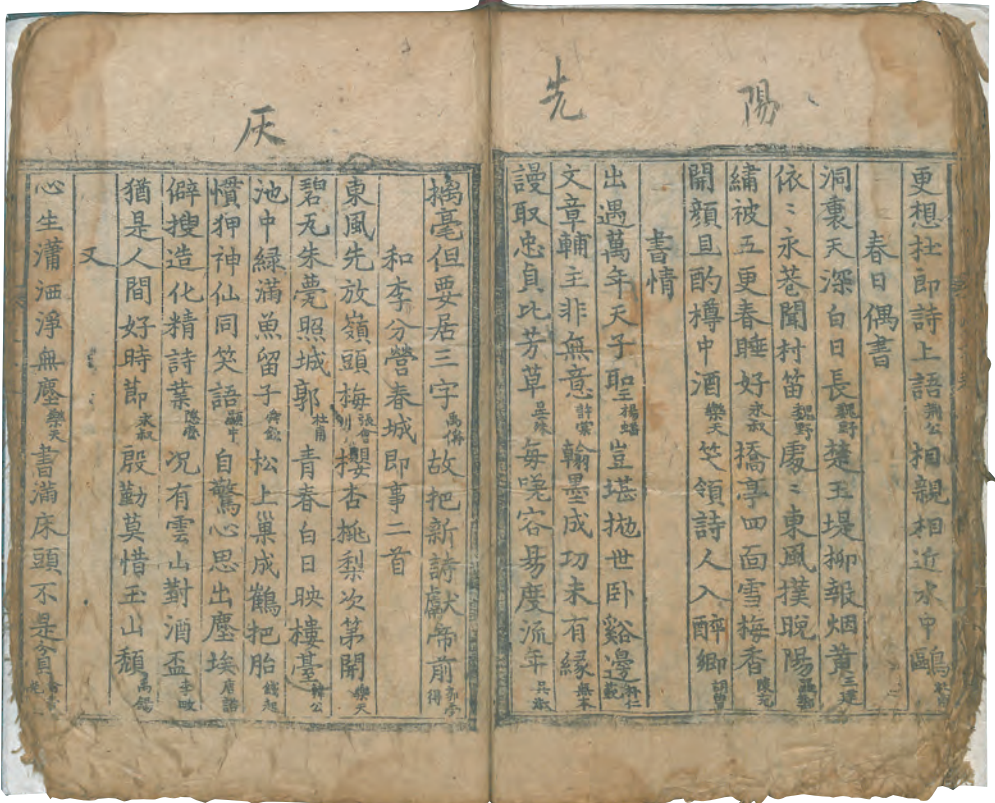 陽
先
更想杜郎詩上語荊公相親相近水中鷗
春日偶書
洞裏天深白日長魏野楚王堤柳報烟黃
依〻永巷聞村笛魏野處〻東風撲晚陽
繡被五更春睡好永叔橋亭四面雪梅香陳元
開顏且酌樽中酒樂天笑領詩人入醉鄉胡曾
書情
出遇萬年天子聖楊蟠豈堪拋世卧谿邊
文章輔主非無意許棠翰墨成功未有緣無本
謾取忠貞比芳草吳融每嗟容易度流年吳融
灰
摛毫但要居三字禹偁故把新詩獻帝前
和李分營春城即事二首
東風先放嶺頭梅櫻杏桃梨次第開樂天
碧瓦朱甍照城郭杜甫青春白日映樓臺韓公
池中綠滿魚留子舜欽松上巢成鶴把胎錢起
慣狎神仙同笑語自驚心思出塵埃唐諤
僻搜造化精詩業况有雲山對酒盃
猶是人間好時節永叔殷勤莫惜玉山頹禹錫
又
心生瀟洒淨無塵樂天書滿床頭不是貧